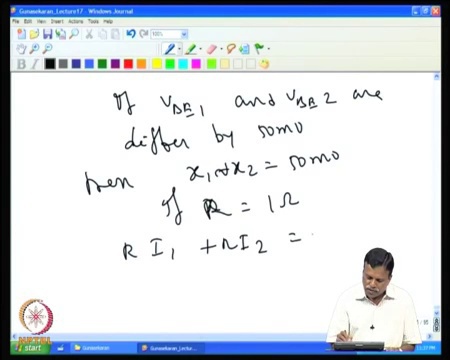 Gunasekaran_Lecture17 - Windows Journal
File Edit View Insert Actions Tools Help
100%
B I
If VBE1 and VBE2 are
differ by 50mV
then x1 + x2 = 50mV
If R = 1Ω
R I1 + R I2 =
NPTEL
start Gunasekaran Gunasekaran_Lectu...